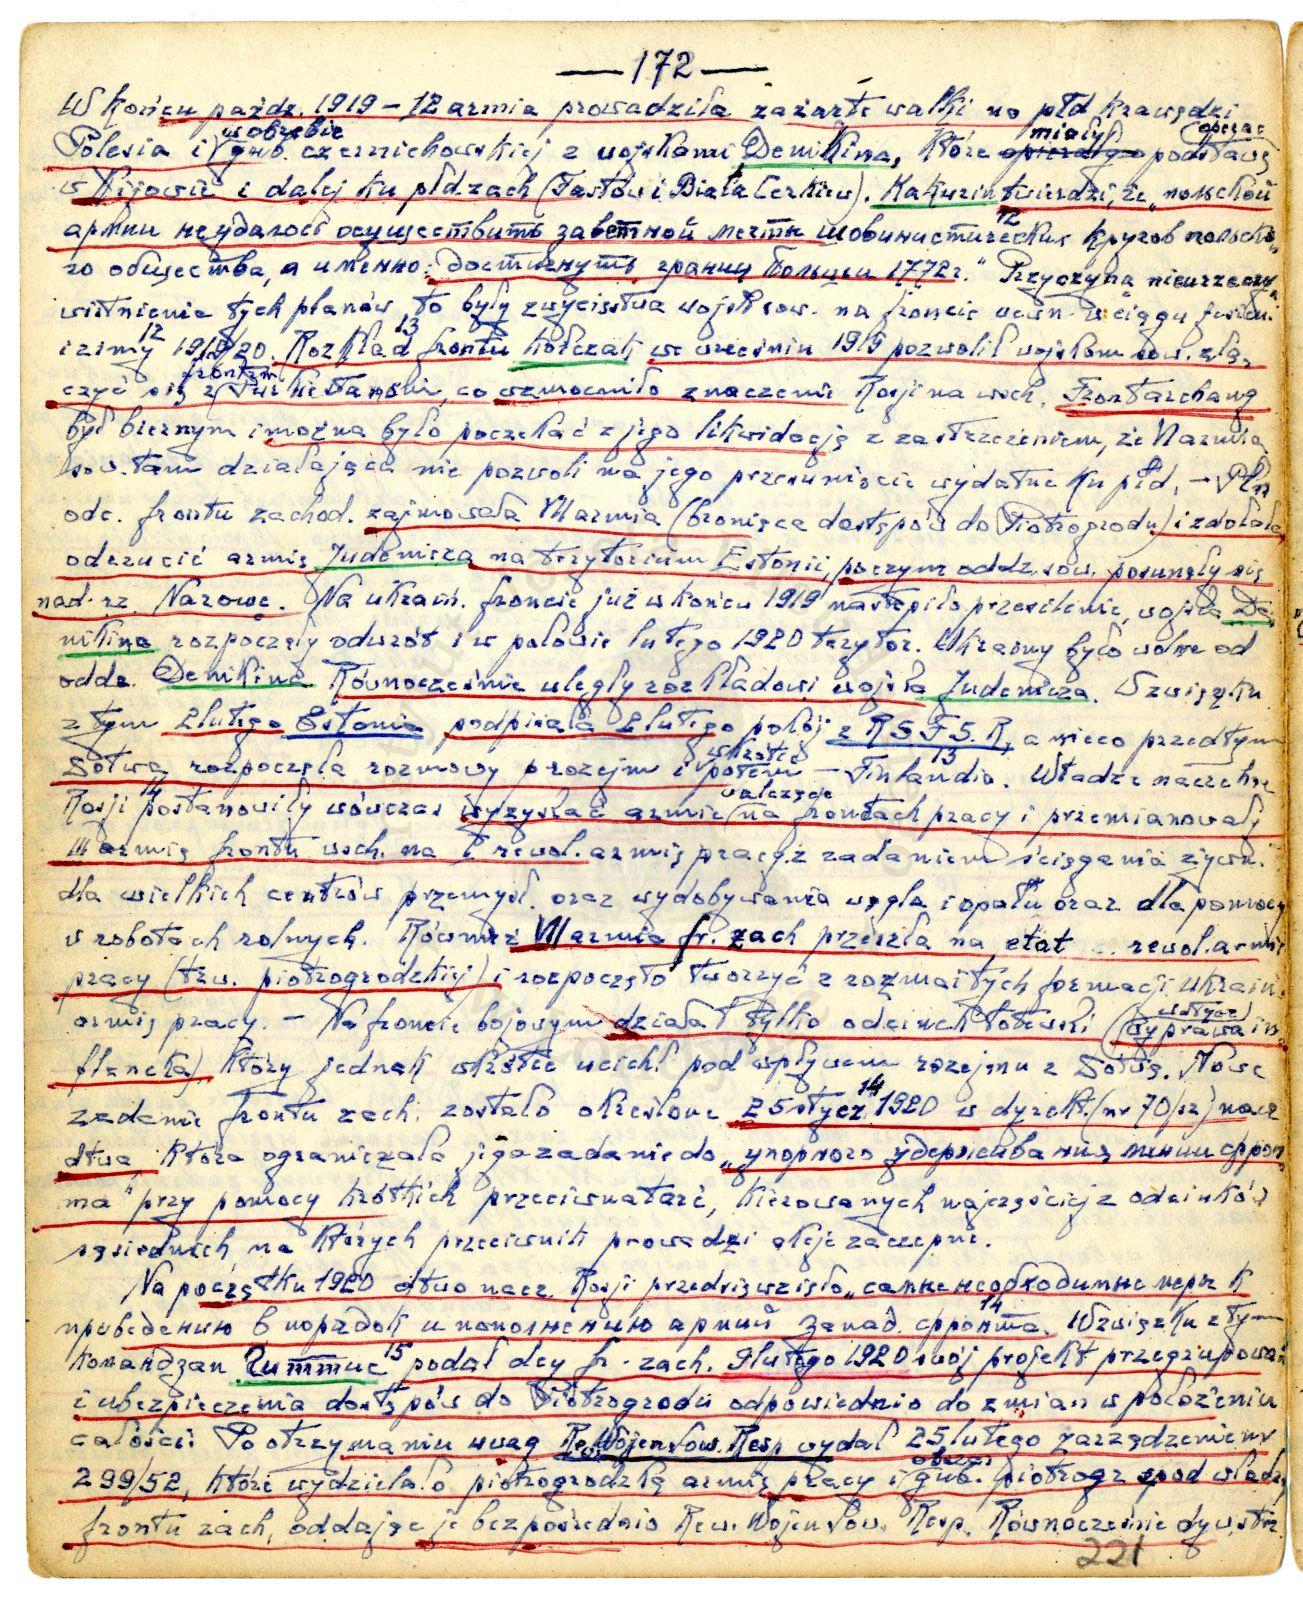 — 172 —
W końcu paźdz. 1919 – 12 armia prowadziła zażarte walki na płd krawędzi
Polesia i w obrębie gub. czernichowskiej z wojskami Denikina, które miały opierały podstawę
w Kijowie i dalej ku płd. zach (Fastów i Biała Cerkiew). Kakurin twierdzi, że „польской
армии неудалось осуществить заветной мечты шовинистических 12 кругов польско-
го общества, а именно: достигнуть границ Польши 1772 г." Przyczyną nieurzeczy-
wistnienia tych planów to były zwycięstwa wojsk sow. na froncie wewn. w ciągu jesieni
i zimy 12 1919/20. Rozkład 13 frontu Kołczak we wrześniu 1919 pozwolił wojskom sow. złą-
czyć się z frontem Turkiestańskim, co wzmocniło znaczenie Rosji na wsch. Front archang
był biernym i można było poczekać z jego likwidacją z zastrzeżeniem, że VI armia
sow. tam działająca nie pozwoli na jego przesunięcie wydatne ku płd. – Płn
odc. frontu zachod. zajmowała VII armia (broniąca dostępów do Piotrogrodu) i zdołała
odrzucić armię Judenicza na terytorium Estonii, poczym oddz. sow. posunęły się
nad rz. Narowę. Na ukraiń. froncie już w końcu 1919 nastąpiło przesilenie, wojska De-
nikina rozpoczęły odwrót i w połowie lutego 1920 terytor. Ukrainy było wolne od
oddz. Denikina Równocześnie uległy rozkładowi wojska Judenicza. W związku
z tym 2 lutego Estonia podpisała 2 lutego pokój z R S F S. R, a nieco przedtym
Łotwa rozpoczęła rozmowy o rozejm i wkrótce potem – Finlandia. 13 Władze naczelne
Rosji 14 postanowiły wówczas wyzyskać armie walczące na frontach pracy i przemianowały
III armię frontu wsch. na I rewol. armię pracy z zadaniem ściągania żywn.
dla wielkich centrów przemysł. oraz wydobywania węgla i opału oraz dla pomocy
w robotach rolnych. Również VII armia fr. zach przeszła na etat rewol. armii
pracy (tzw. piotrogrodzkiej) i rozpoczęto tworzyć z rozmaitych formacji ukraiń.
armię pracy. – Na froncie bojowym działał tylko odcinek łotewski (wyprawa in-
flancka) który jednak wkrótce ucichł pod wpływem rozejmu z Łotwą. Nowe
zadanie frontu zach. zostało określone 25 stycz 14 1920 w dyrekt. (nr 70/sz) nacz
dtwa która ograniczała jego zadanie do „упорного удерживания линии фрон-
та" przy pomocy krótkich przeciwnatarć, kierowanych najczęściej z odcinków
sąsiednich na których przeciwnik prowadzi akcje zaczepne.
Na początku 1920 dtwo nacz. Rosji przedsięwzięło „самые необходимые меры к
приведению в порядок и пополнению армий запад. фронта. 14 W związku z tym
komandzap. Гиттис 15 podał dcy fr. zach. 9 lutego 1920 swój projekt przegrupowań
i ubezpieczenia dostępów do Piotrogrodu odpowiednio do zmian w położeniu
całości Po otrzymaniu uwag Rew. Wojen. Sow. Resp wydał 25 lutego zarządzenie nr
299/52, które wydzielało piotrogrodzką armię pracy i gub. piotrogr spod władzy
frontu zach, oddając je bezpośrednio Rew. Wojen. Sow. Resp. Równocześnie dyw. strz.
221